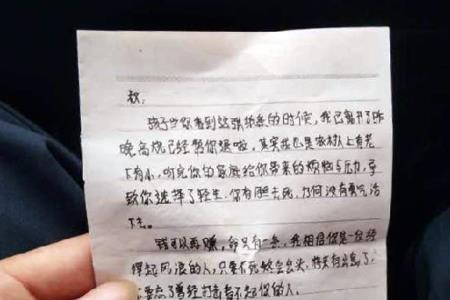 孩子当你看到这张纸条的时候,我已离开了昨
晚高烧已经帮你退啦,其实我也是农村人上有老
下有小,听完你的家庭给你带来的烦恼与压力,导
致你选择了轻生,你有胆去死,为何没有勇气活
下去。
钱可以再赚,命只有一条,我相信你是一位经
得起风浪的人,只要不死终会出头,将来有出息了,
要忘了曾经打击看不起你的人.